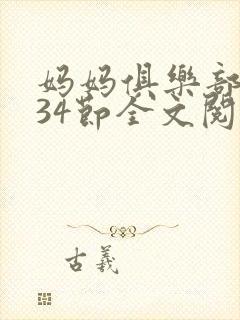 妈妈俱樂部
34節全文閱
古義